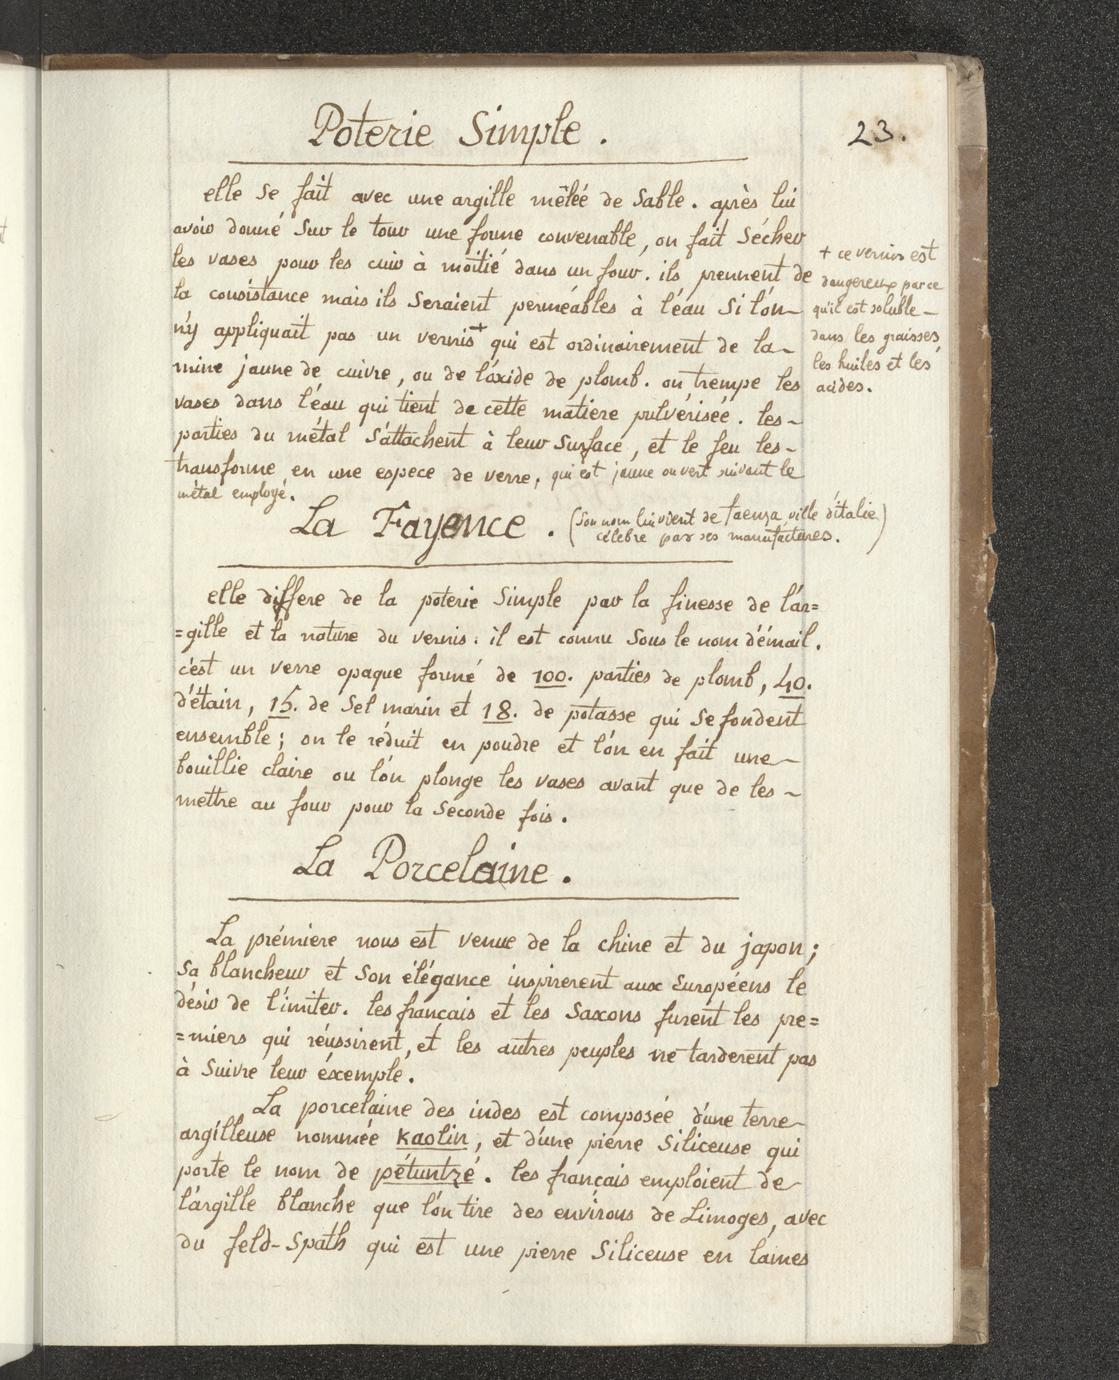 23.
Poterie Simple.
elle se fait avec une argille mêleé de Sable. après lui
avoir donné Sur le tour une forme convenable, on fait Sécher
les vases pour les cuir à moitié dans un four. ils prennent de
la consistance mais ils Seraient perméables à l'éau Si l'ón
n'y appliquait pas un vernis + qui est ordinairement de la
mine jaune de cuivre, ou de l'óxide de plomb. on trempe les
vases dans l'éau qui tient de cette matiere pulvériseé. les
parties du métal S'áttachent à leur Surface, et le feu les
transforme en une espece de verre, qui est jaune ou vert suivant le
métal employé.
+ ce vernis est
dangereux parce
qu'il est soluble
dans les graisses
les huiles et les
acides.
La Fayence. (Son nom lui vient de faenza ville d'italie
célebre par ses manufactures.)
elle differe de la poterie Simple par la finesse de l'ár=
=gille et la nature du vernis: il est connu Sous le nom d'émail.
c'ést un verre opaque formé de 100. parties de plomb, 40.
d'étain, 15. de Sel marin et 18. de potasse qui Se fondent
ensemble; on le réduit en poudre et l'ón en fait une
bouillie claire ou l'ón plonge les vases avant que de les
mettre au four pour la Seconde fois.
La Porcelaine.
La prémiere nous est venue de la chine et du japon;
Sa blancheur et Son élégance inspirerent aux Européens le
désir de l'ímiter. les francais et les Saxons furent les pre=
=miers qui réussirent, et les autres peuples ne tarderent pas
à Suivre leur éxemple.
La porcelaine des indes est composée d'úne terre
argilleuse nommée kaolin, et d'úne pierre Siliceuse qui
porte le nom de pétuntzé. les français emploient de
l'árgille blanche que l'ón tire des environs de Limoges, avec
du feld-Spath qui est une pierre Siliceuse en lames